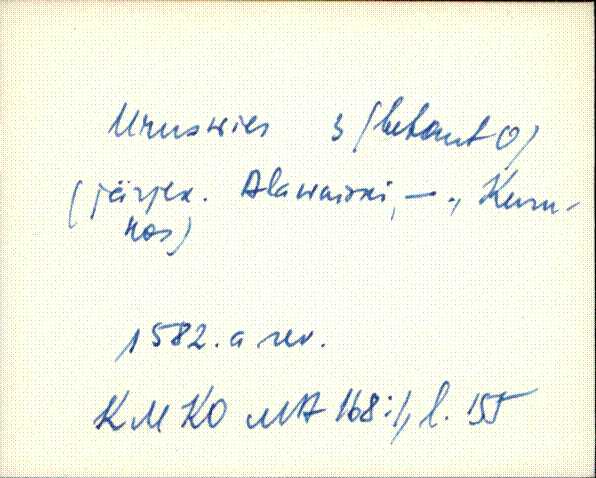 Uruswies 3 (besaut 0)
(järjek. Alawaioki, — ., Kuru-
kos)
1582. a rev.
KM KO MA 168:1, l. 155